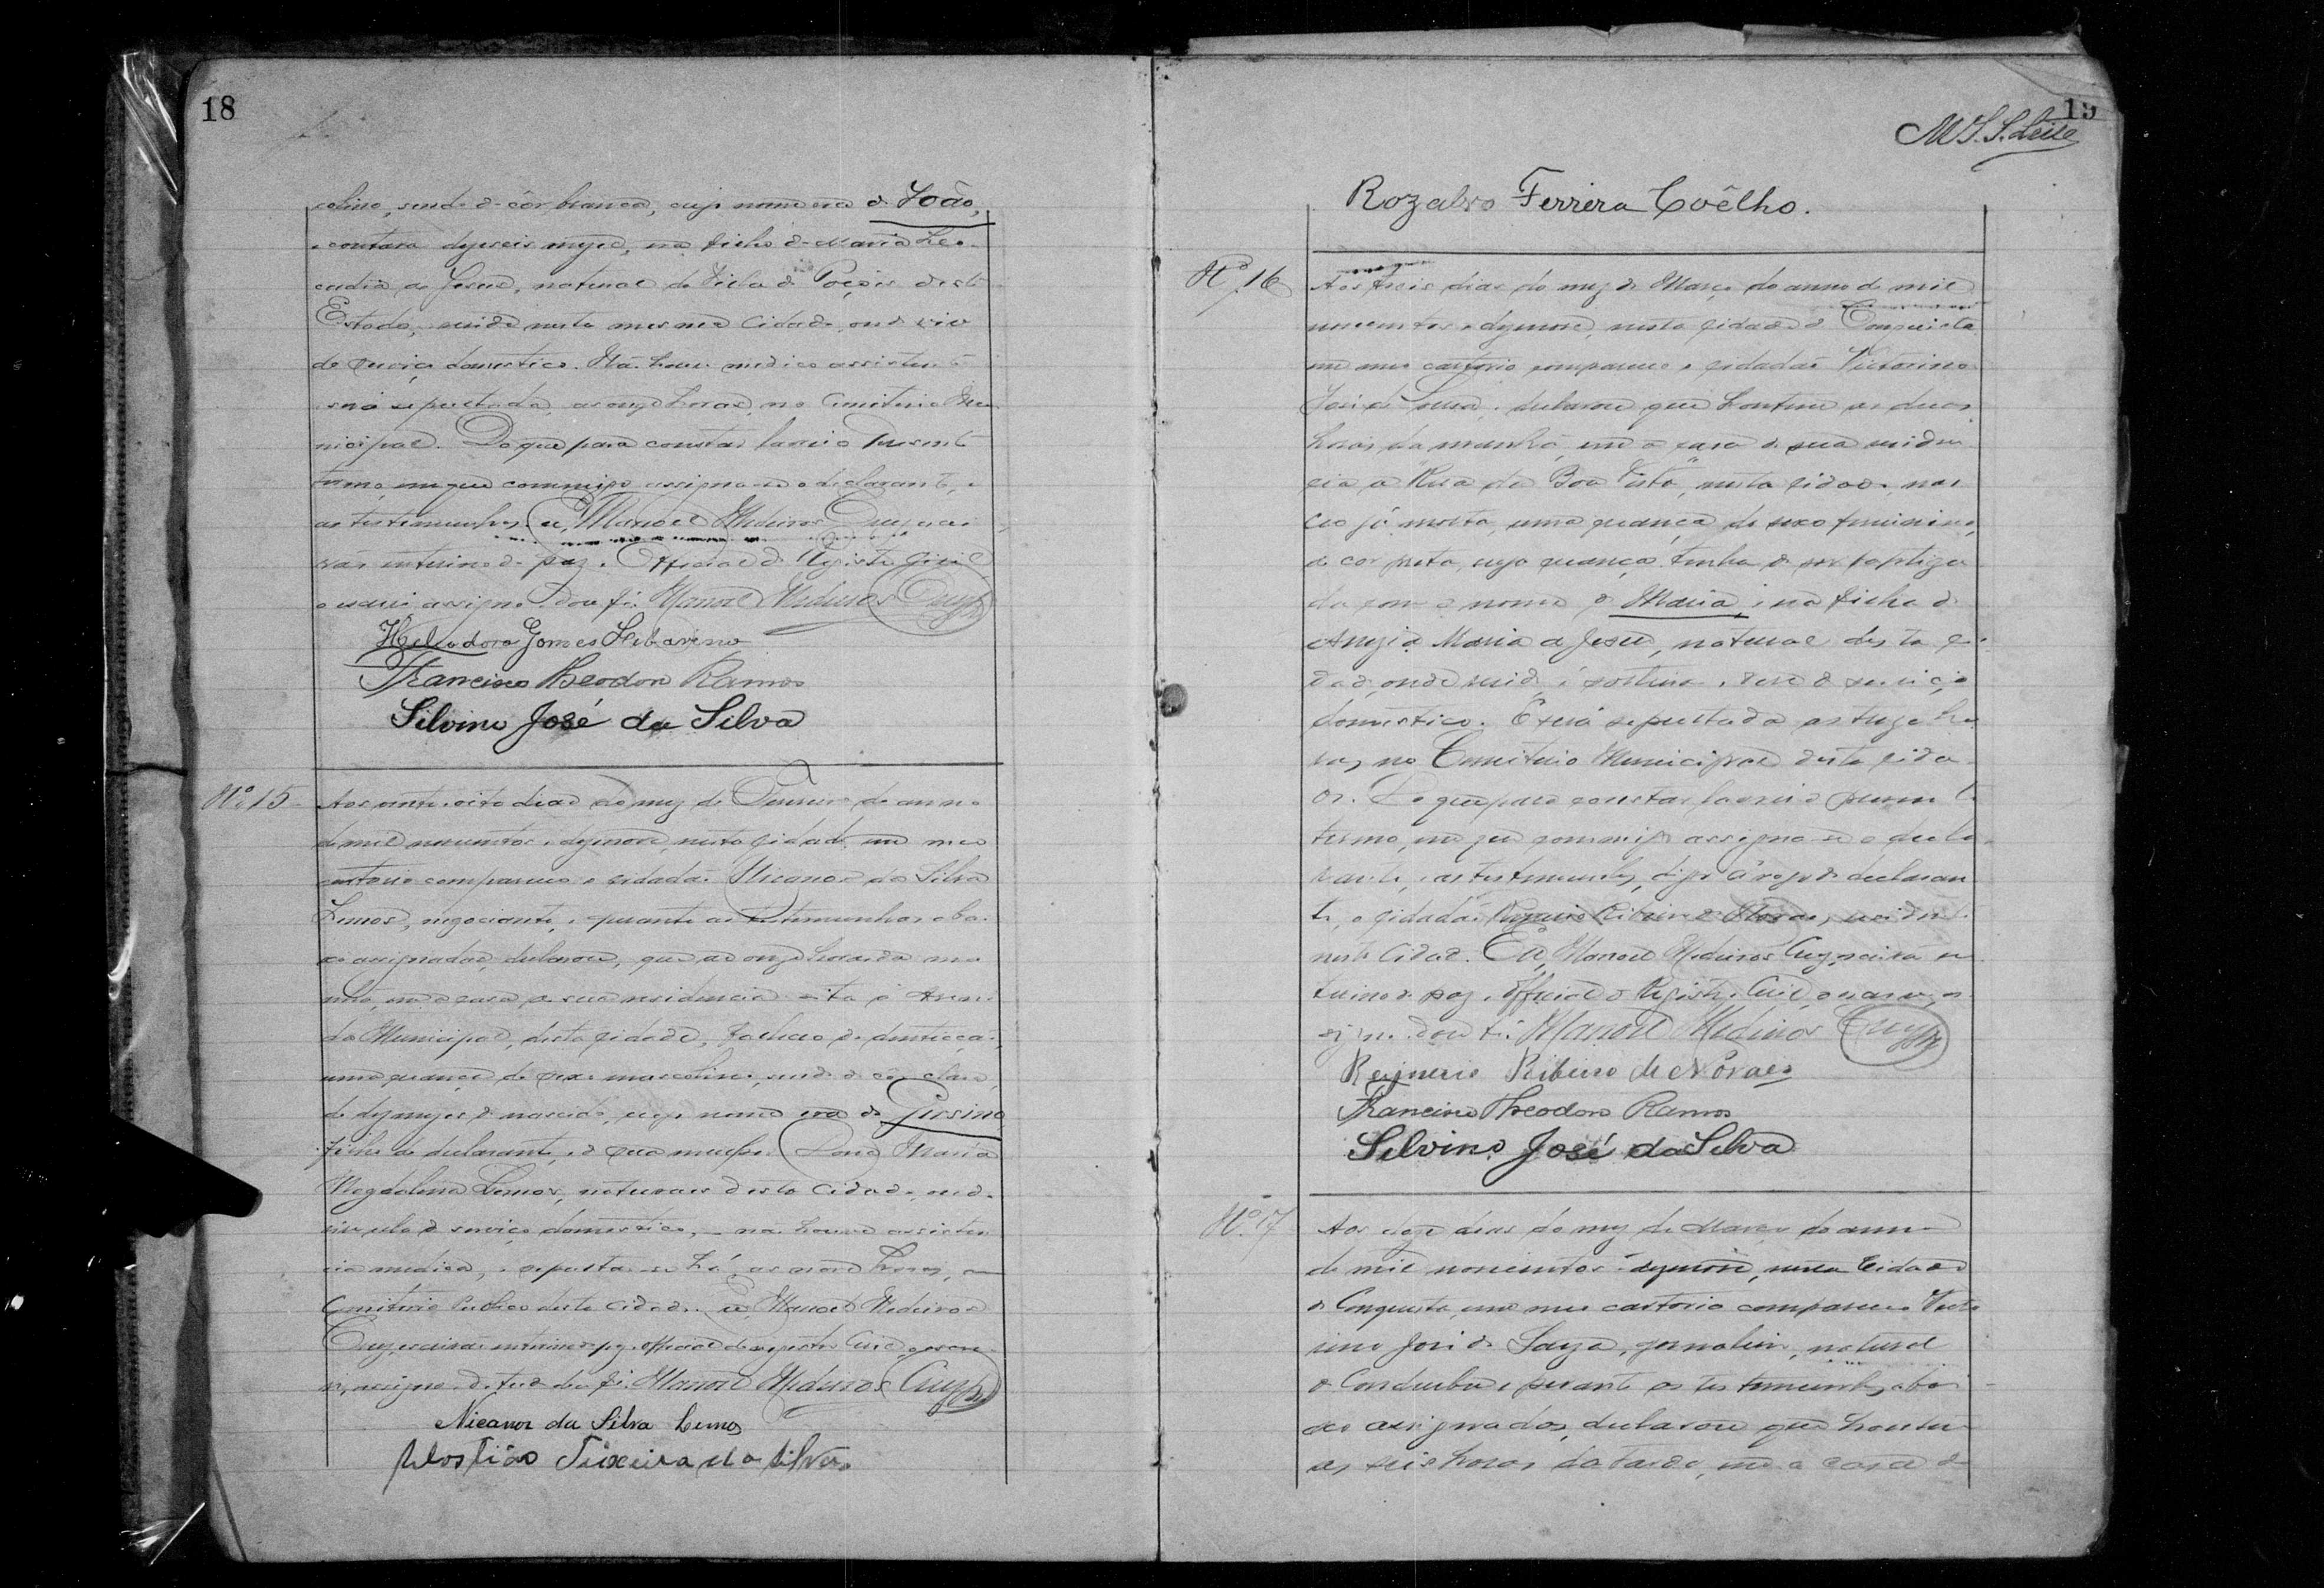 18
colino, sendo de côr branca, cujo nome era o João,
e contava dezeseis mezes, era filho de Maria Leo-
cadia de Jesus, natural da Villa de Poções deste
Estado, reside nesta mesma Cidade, onde vive
de serviço domestico. Não houve medico assistente
será sepultado, as onze horas, no Cimiterio Mu-
nicipal. Do que para constar lavrei o presente
termo, em que commigo assigna-se o declarante, e
as testemunhas. Eu, Manoel Medeiros Cruz,
interino de paz e Official do Registro Civil
o escrevi assigno. Dou fé. Manoel Medeiros Cruz
Heliodoro Gomes
Francisco Theodoro Ramos
Silvino José da Silva
Nº 15 Aos vinte e oito dias do mez de Fevereiro do anno
de mil novecentos e dezenove, nesta Cidade, em meu
cartorio compareceu o cidadão Nicanor da Silva
Lemos, negociante, e perante as testemunhas abai-
xo assignadas, declarou, que as onze horas da ma-
nhã, em a casa de sua residencia sita á
Municipal, desta Cidade, falleceu de dentição,
uma creança do sexo masculino, sendo de côr clara,
de dez mezes de nascido, cujo nome era de Gersino
filho do declarante, e de sua mulher Dona Maria
Magdalena Lemos, naturaes desta Cidade, onde
de serviço domestico, não houve assisten-
cia medica, e sepultar-se-há, as nove horas, no
Cimiterio Publico desta Cidade. Eu, Manoel Medeiros
Cruz, escrivão interino de paz e official do registro Civil o escre-
vi, assigno e de tudo dou fé. Manoel Medeiros Cruz
Nicanor da Silva Lemos
Teixeira da Silva
19
M S. S. Leite
Rozalvo Ferrera Coêlho.
Nº 16 Aos treis dias do mez de Março do anno de mil
novecentos e dezenove, nesta Cidade de Conquista
em meu cartorio compareceu o cidadão Victorino
José de Souza e declarou que hontem as duas
horas da manhã, em a casa de sua residen-
cia a Rua da Boa Vista, nesta Cidade, nas-
ceo já morta, uma creança do sexo feminino,
de cor preta, cuja creança tinha de ser baptiza-
da com o nome de Maria, é filha de
Anezia Maria de Jesus, natural desta Ci-
dade, onde reside, é solteira e vive de serviço
domestico. E será sepultada as treze ho-
ras, no Cimiterio Municipal desta Cida-
de. Do que para constar lavrei o presente
termo, em que commigo assigna-se o decla-
rante, e as testemunhas, digo á rogo do declaran-
te, o cidadão Ribeiro de Novaes, residente
nesta Cidade. Eu, Manoel Medeiros Cruz, escrivão in-
terino de paz e Official do Registro Civil, o escrevi, as-
signo e dou fé. Manoel Medeiros Cruz
Ribeiro de Nôvaes
Francisco Theodoro Ramos
Silvino José da Silva
Nº 17 Aos doze dias do mez de Março do anno
de mil novecentos e dezenove, nesta Cidade
de Conquista, em meu cartorio compareceu Victo-
rino José de Souza, jornaleiro, natural
de Condeuba e perante as testemunhas abai-
xo assignadas, declarou que hontem
as seis horas da tarde, em a casa de